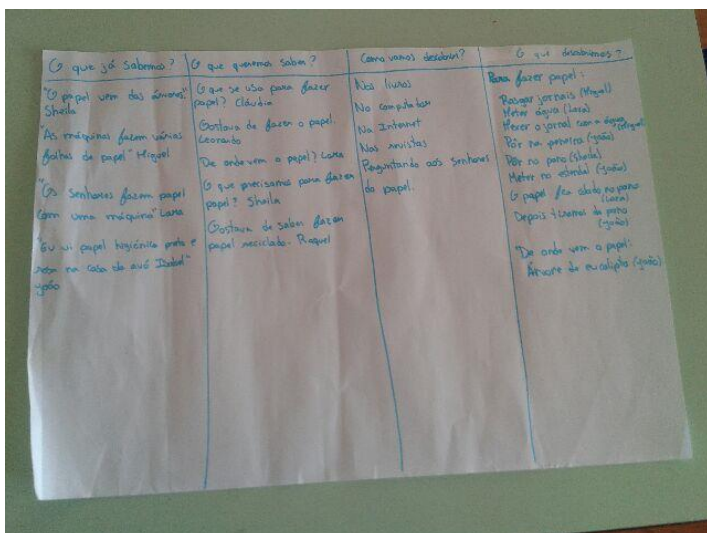 O que já sabemos?
"O papel vem das árvores."
Sheila
"As máquinas fazem várias
folhas de papel" Miguel
"Os Senhores fazem papel
com uma máquina" Lara
"Eu vi papel higiénico preto e
rosa na casa da avó Isabel"
João
O que queremos saber?
O que se usa para fazer
papel? Cláudia
Gostava de fazer o papel.
Leonardo
De onde vem o papel? Lara
O que precisamos para fazer
papel? Sheila
Gostava de saber fazer
papel reciclado. Raquel
Como vamos descobrir?
Nos livros
No computador
Na Internet
Nas revistas
Perguntando aos Senhores
do papel.
O que descobrimos?
Para fazer papel:
Rasgar jornais (Miguel)
Meter água (Lara)
Mexer o jornal com a água (Miguel)
Pôr na peneira (João)
Pôr no pano (Sheila)
Meter no estendal (João)
O papel fica no pano
(Lara)
Depois do pano
(João)
"De onde vem o papel:
Árvore de eucalipto (João)